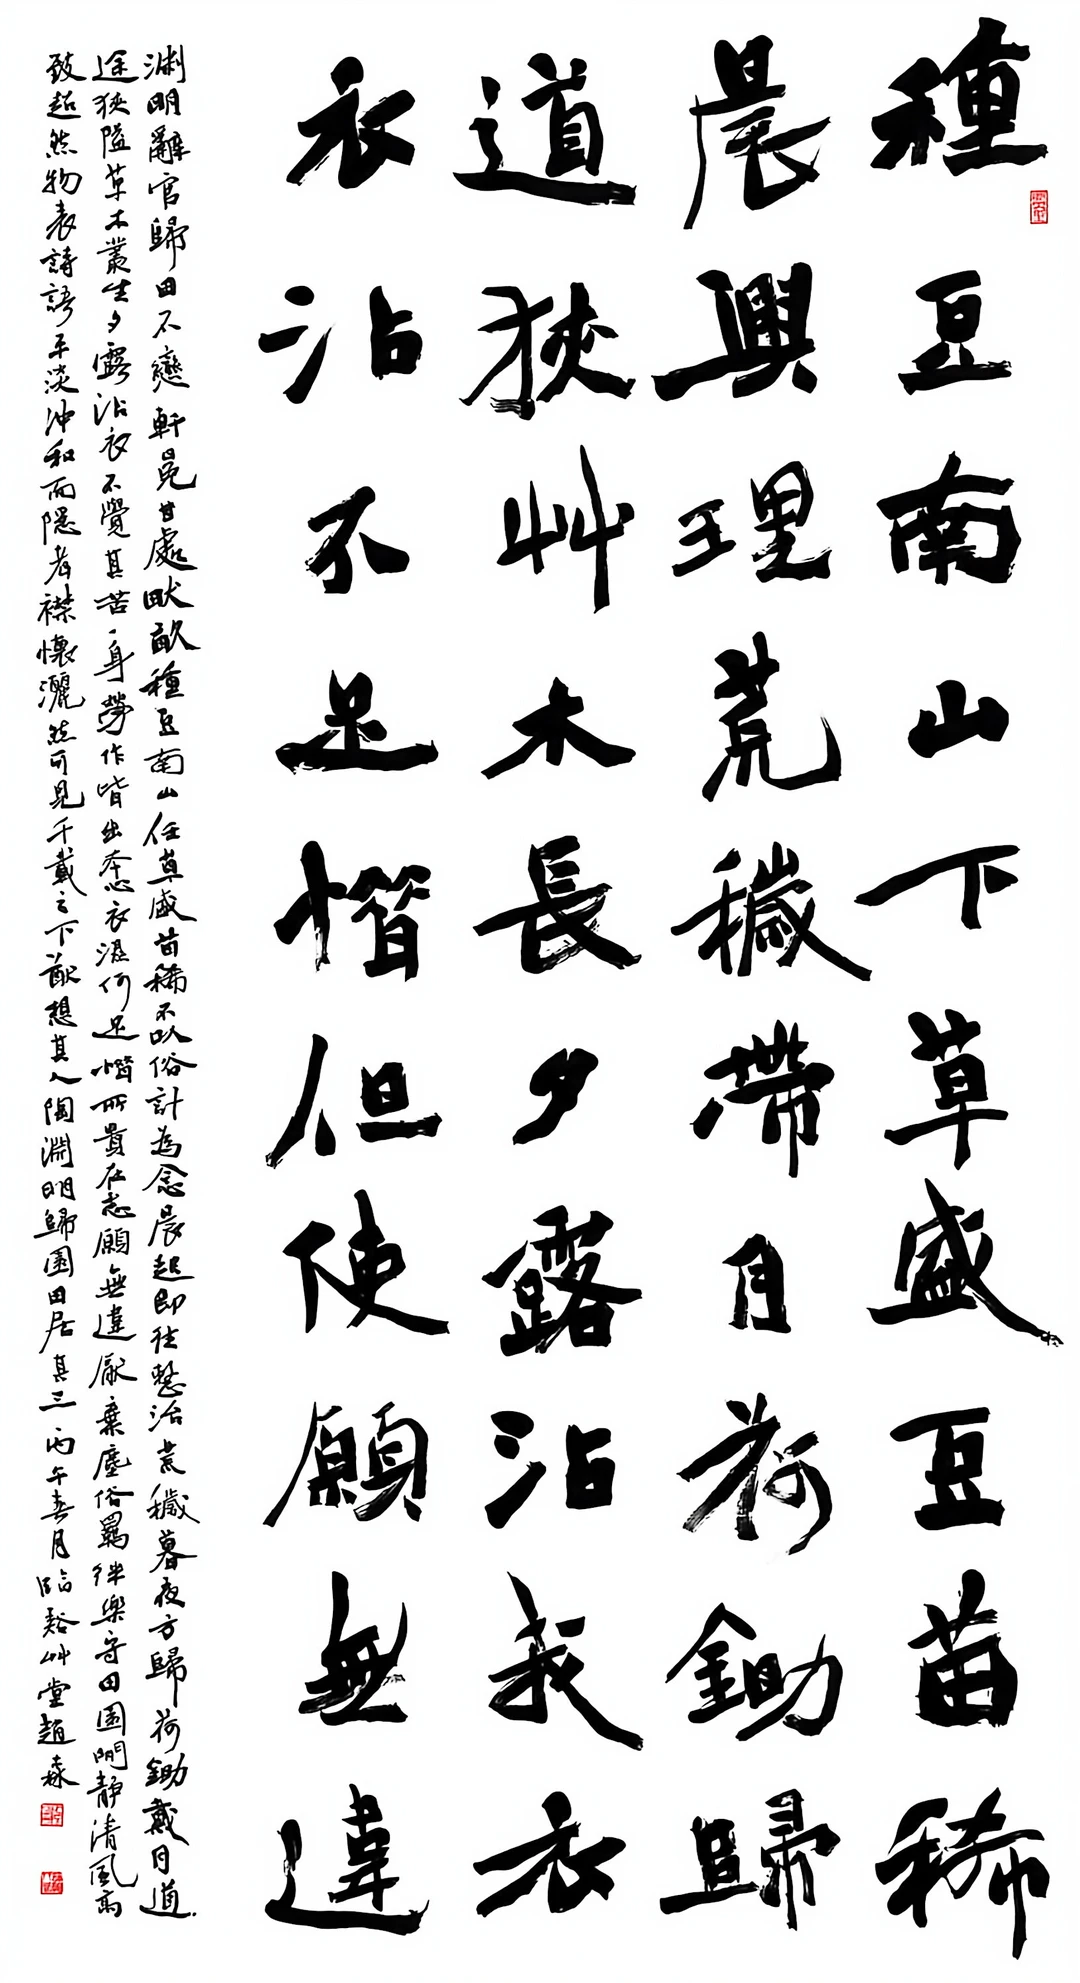 種豆南山下草盛豆苗稀
晨興理荒穢帶月荷鋤歸
道狹艸木長夕露沾我衣
衣沾不足惜但使願無違
淵明辭官歸田不戀軒冕甘處畎畝種豆南山任草盛苗稀不以俗計為念晨起即往整治荒穢暮夜方歸荷鋤戴月道
途狹隘草木叢生夕露沾衣不覺其苦一身勞作皆出本心衣濕何足惜所貴在志願無違厭棄塵俗羈絆樂守田園閒靜清風高
致超然物表詩語平淡沖和而隱者襟懷灑然可見千載之下猶想其人陶淵明歸園田居其三丙午春月臨谿艸堂趙森